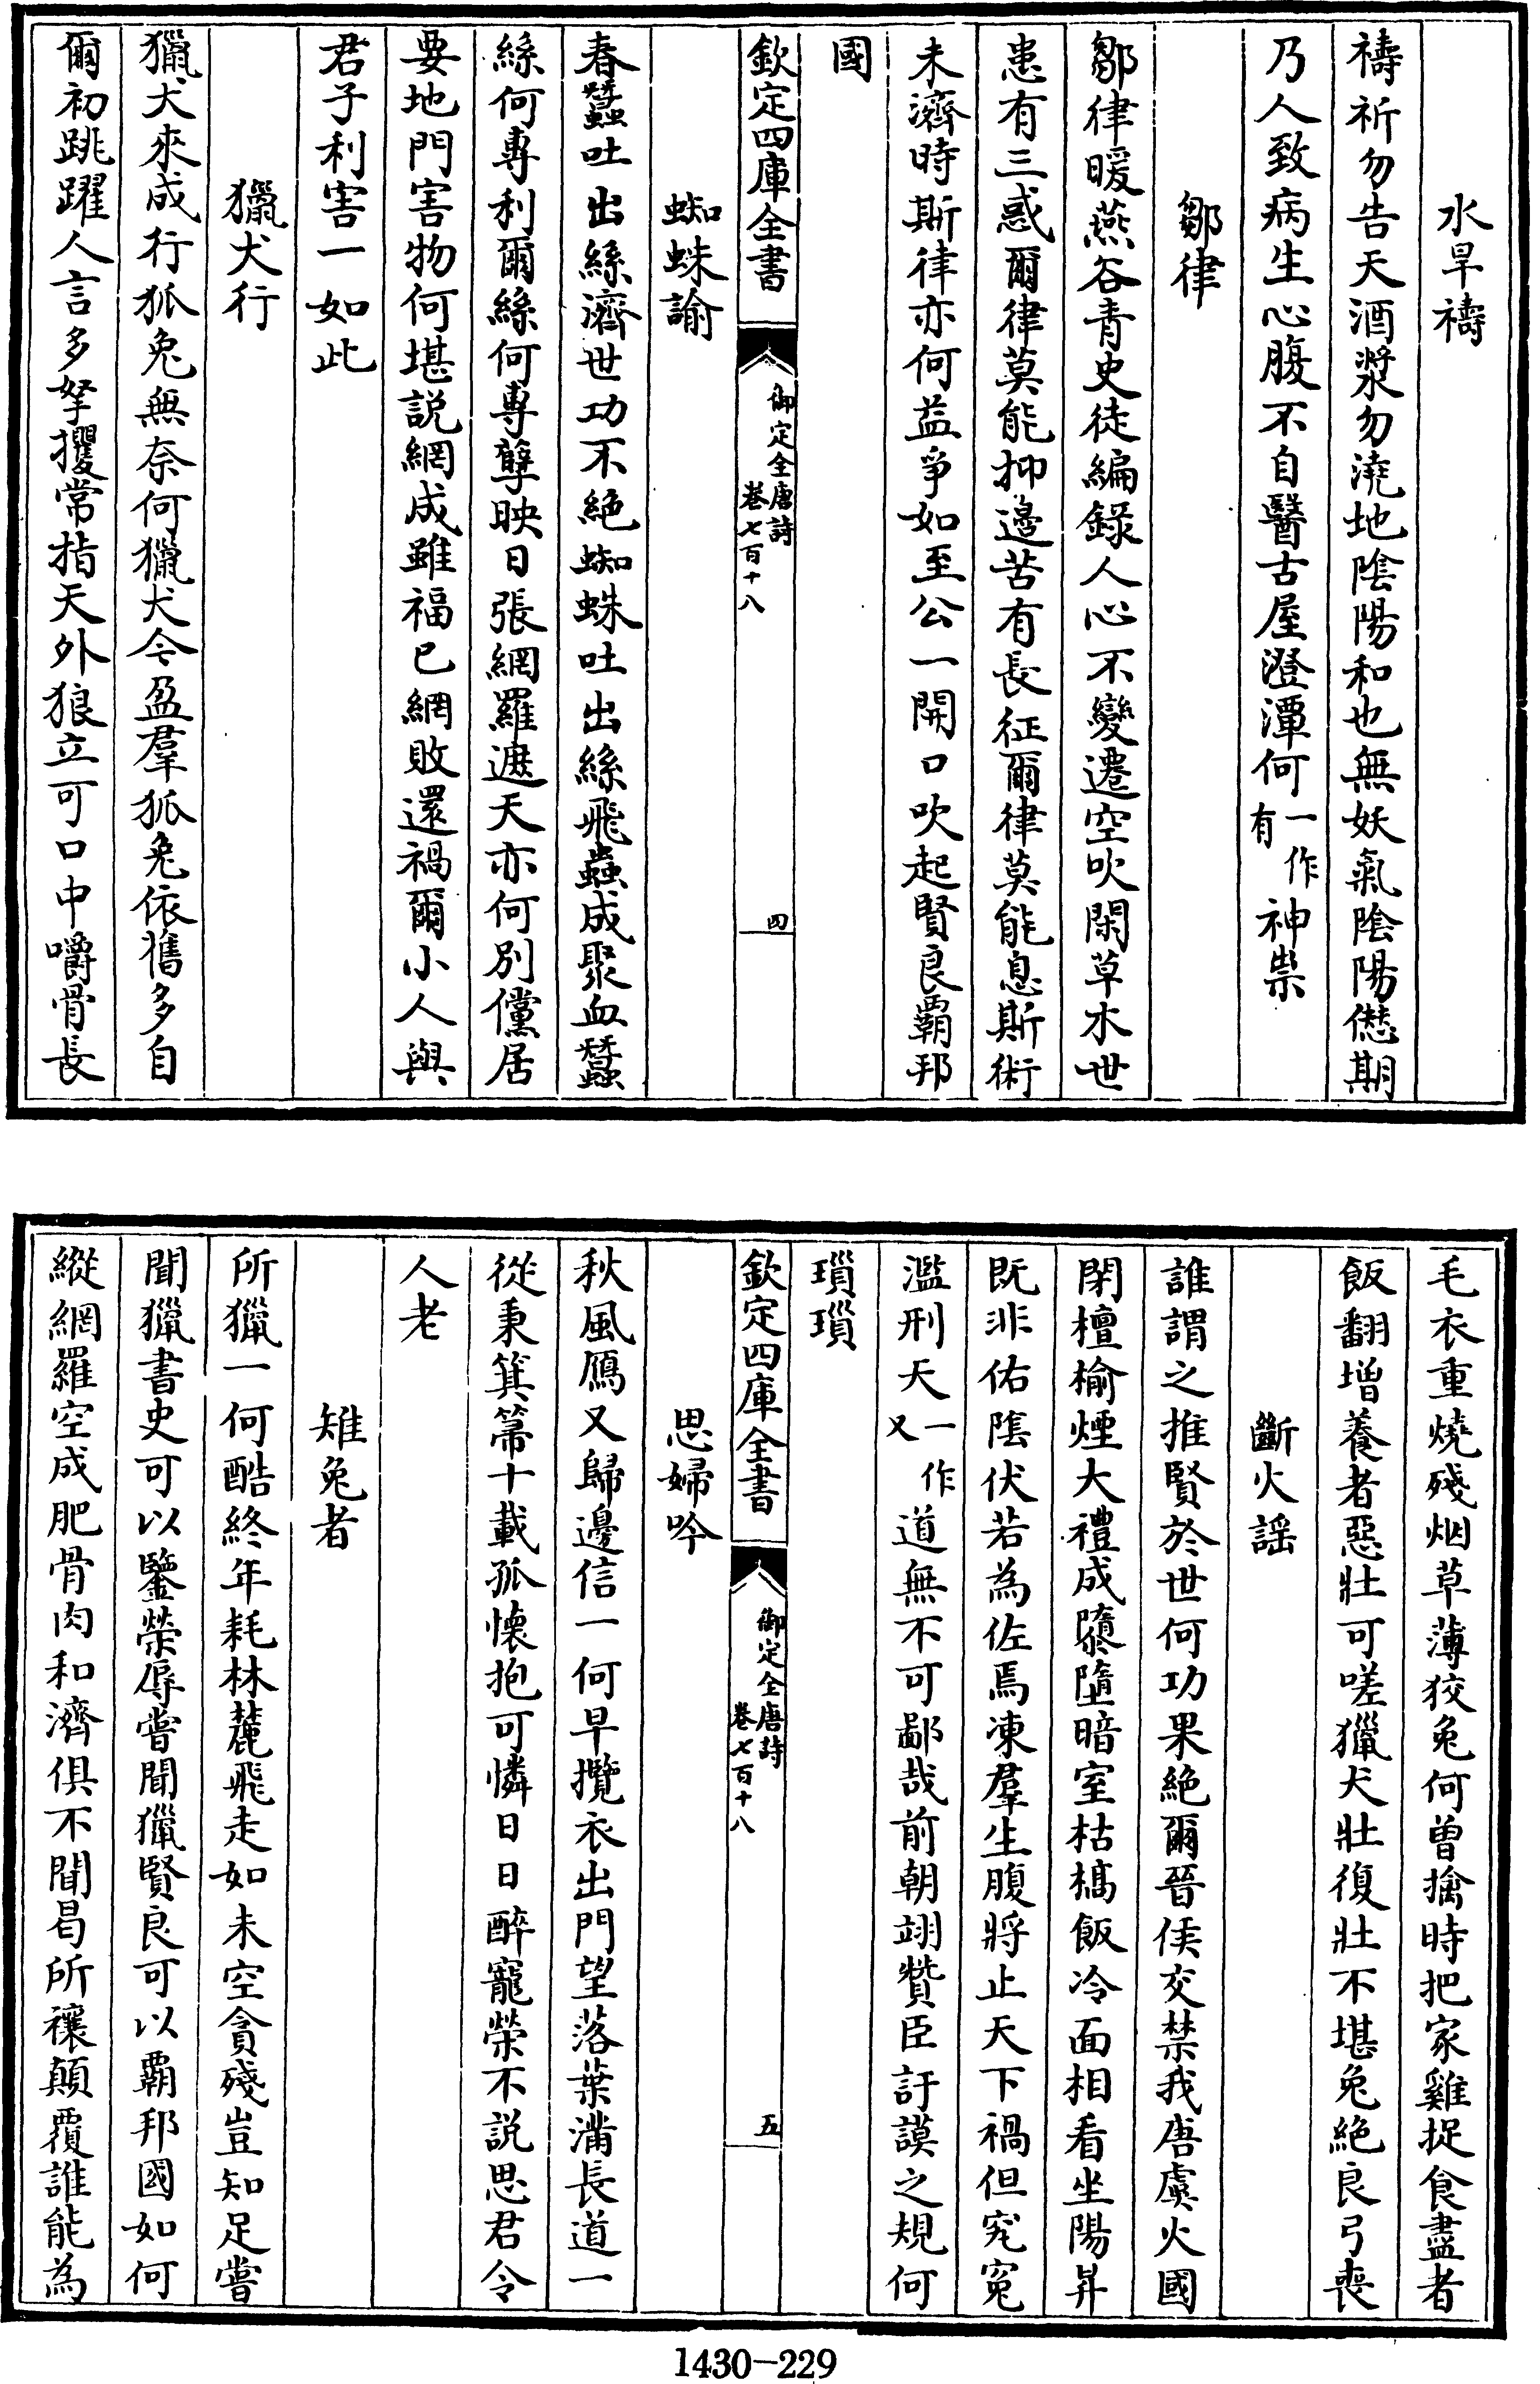 水旱禱
禱祈勿告天酒漿勿澆地陰陽和也無妖氣陰陽愆期
乃人致病生心腹不自醫古屋澄潭何一作有神祟
鄒律
鄒律暖燕谷青史徒編錄人心不變遷空吹閑草木世
患有三惑爾律莫能抑邊苦有長征爾律莫能息斯術
未濟時斯律亦何益爭如至公一開口吹起賢良霸邦
國
欽定四庫全書
御定全唐詩
卷七百十八
四
蜘蛛諭
春蠶吐出絲濟世功不絕蜘蛛吐出絲飛蟲成聚血蠶
絲何專利爾絲何專孽映日張網羅遮天亦何別儻居
要地門害物何堪説網成雖福已網敗還禍爾小人與
君子利害一如此
獵犬行
獵犬來成行狐兔無奈何獵犬今盈羣狐兔依舊多自
爾初跳躍人言多拏攫常指天外狼立可口中嚼骨長
毛衣重燒殘烟草薄狡兔何曾擒時把家雞捉食盡者
飯翻增養者惡壯可嗟獵犬壯復壯不堪兔絕良弓喪
斷火謡
誰謂之推賢於世何功果絕爾晉侯交禁我唐虞火國
閉檀榆煙大禮成隳墮暗室枯槁飯冷面相看坐陽昇
既非佑陰伏若為佐焉凍羣生腹將止天下禍但究冤
濫刑天一作又道無不可鄙哉前朝翊贊臣訏謨之規何
瑣瑣
欽定四庫全書
御定全唐詩
卷七百十八
五
思婦吟
秋風鴈又歸邊信一何早攬衣出門望落葉滿長道一
從秉箕箒十載孤懷抱可憐日日醉寵榮不説思君令
人老
雉兔者
所獵一何酷終年耗林麓飛走如未空貪殘豈知足嘗
聞獵書史可以鑒榮辱嘗聞獵賢良可以霸邦國如何
縱網羅空成肥骨肉和濟俱不聞曷所禳顛覆誰能為
1430-229